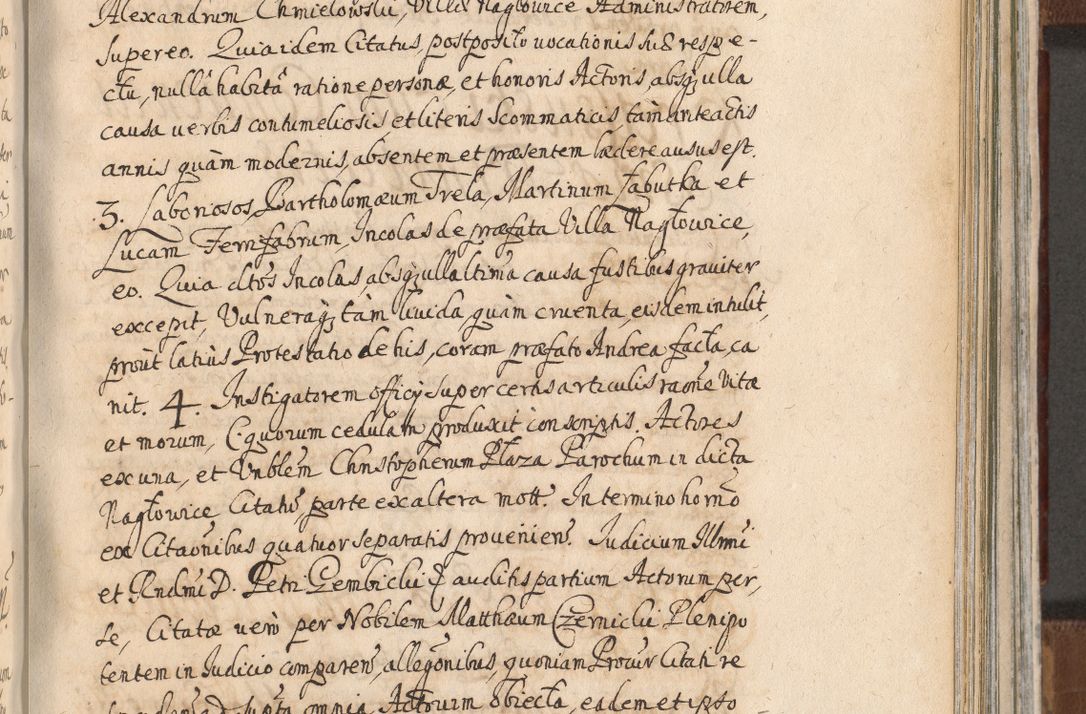 Alexandrum Chmielowski, Villæ Nagłowice Administratorem,
super eo. Quia idem Citatus, postposito vocationis suæ respe-
ctu, nullâ habitâ ratione personæ, et honoris Actoris, absq; ulla
causa verbis contumeliosis, et literis Scommaticis, tàm anteactis
annis quàm modernis, absentem et præsentem lædere ausus est.
3. Laboriosos, Bartholomæum Trela, Martinum Łabutka et
Lucam Ferrifabrum, Incolas de præfata Villa Nagłowice,
eo. Quia dictos Incolas, absq; ulla ltima causa fustibus graviter
excepit, Vulneraq; tàm livida, quàm cruenta, eisdem intulit,
prout latius Protestatio de his, coram præfato Andrea facta, ca
nit. 4. Instigatorem officij super certis articulis raone Vitæ
et morum, quorum cedulam produxit in scriptis. Actores
ex una, et Vnblem Christopherum Płaza Parochum in dicta
Nagłowice Citatu parte ex altera mott. In termino horno
ex Citaonibus quatuor separatis provenien. Iudicium Illmi
et Rndmi D. Petri Gembicki & auditis partium Actorum per,
se, Citatæ vero per Nobilem Matthæum Czernicki Plenipo
tentem in Iudicio comparen, allegonibus, quoniam Procur Citati re
omnia Actorum obiecta, eadem et ipso